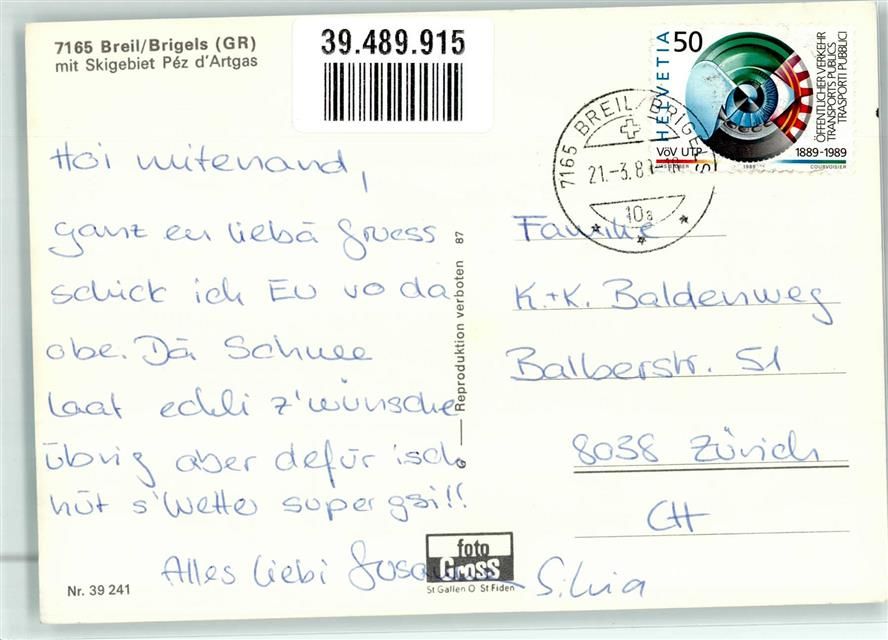 7165 Breil/Brigels (GR)
mit Skigebiet Péz d'Artgas
39.489.915
HELVETIA 50
ÖFFENTLICHER VERKEHR
TRANSPORTS PUBLICS
TRASPORTI PUBBLICI
VöV UTP 1889-1989
1989 COURVOISIER
7165 BREIL/BRIGELS
21.-3.8
10a
Hoi mitenand,
ganz en liebä Gruess
schick ich Eu vo da
obe. Dä Schnee
laat echli z'wünsche
übrig aber defür isch
hüt s'Wetter super gsi!!
Alles liebi
Silvia
Reproduktion verboten 87
Familie
K.+K. Baldenweg
Balberstr. 51
8038 Zürich
CH
foto
Gross
St Gallen O St Fiden
Nr. 39 241